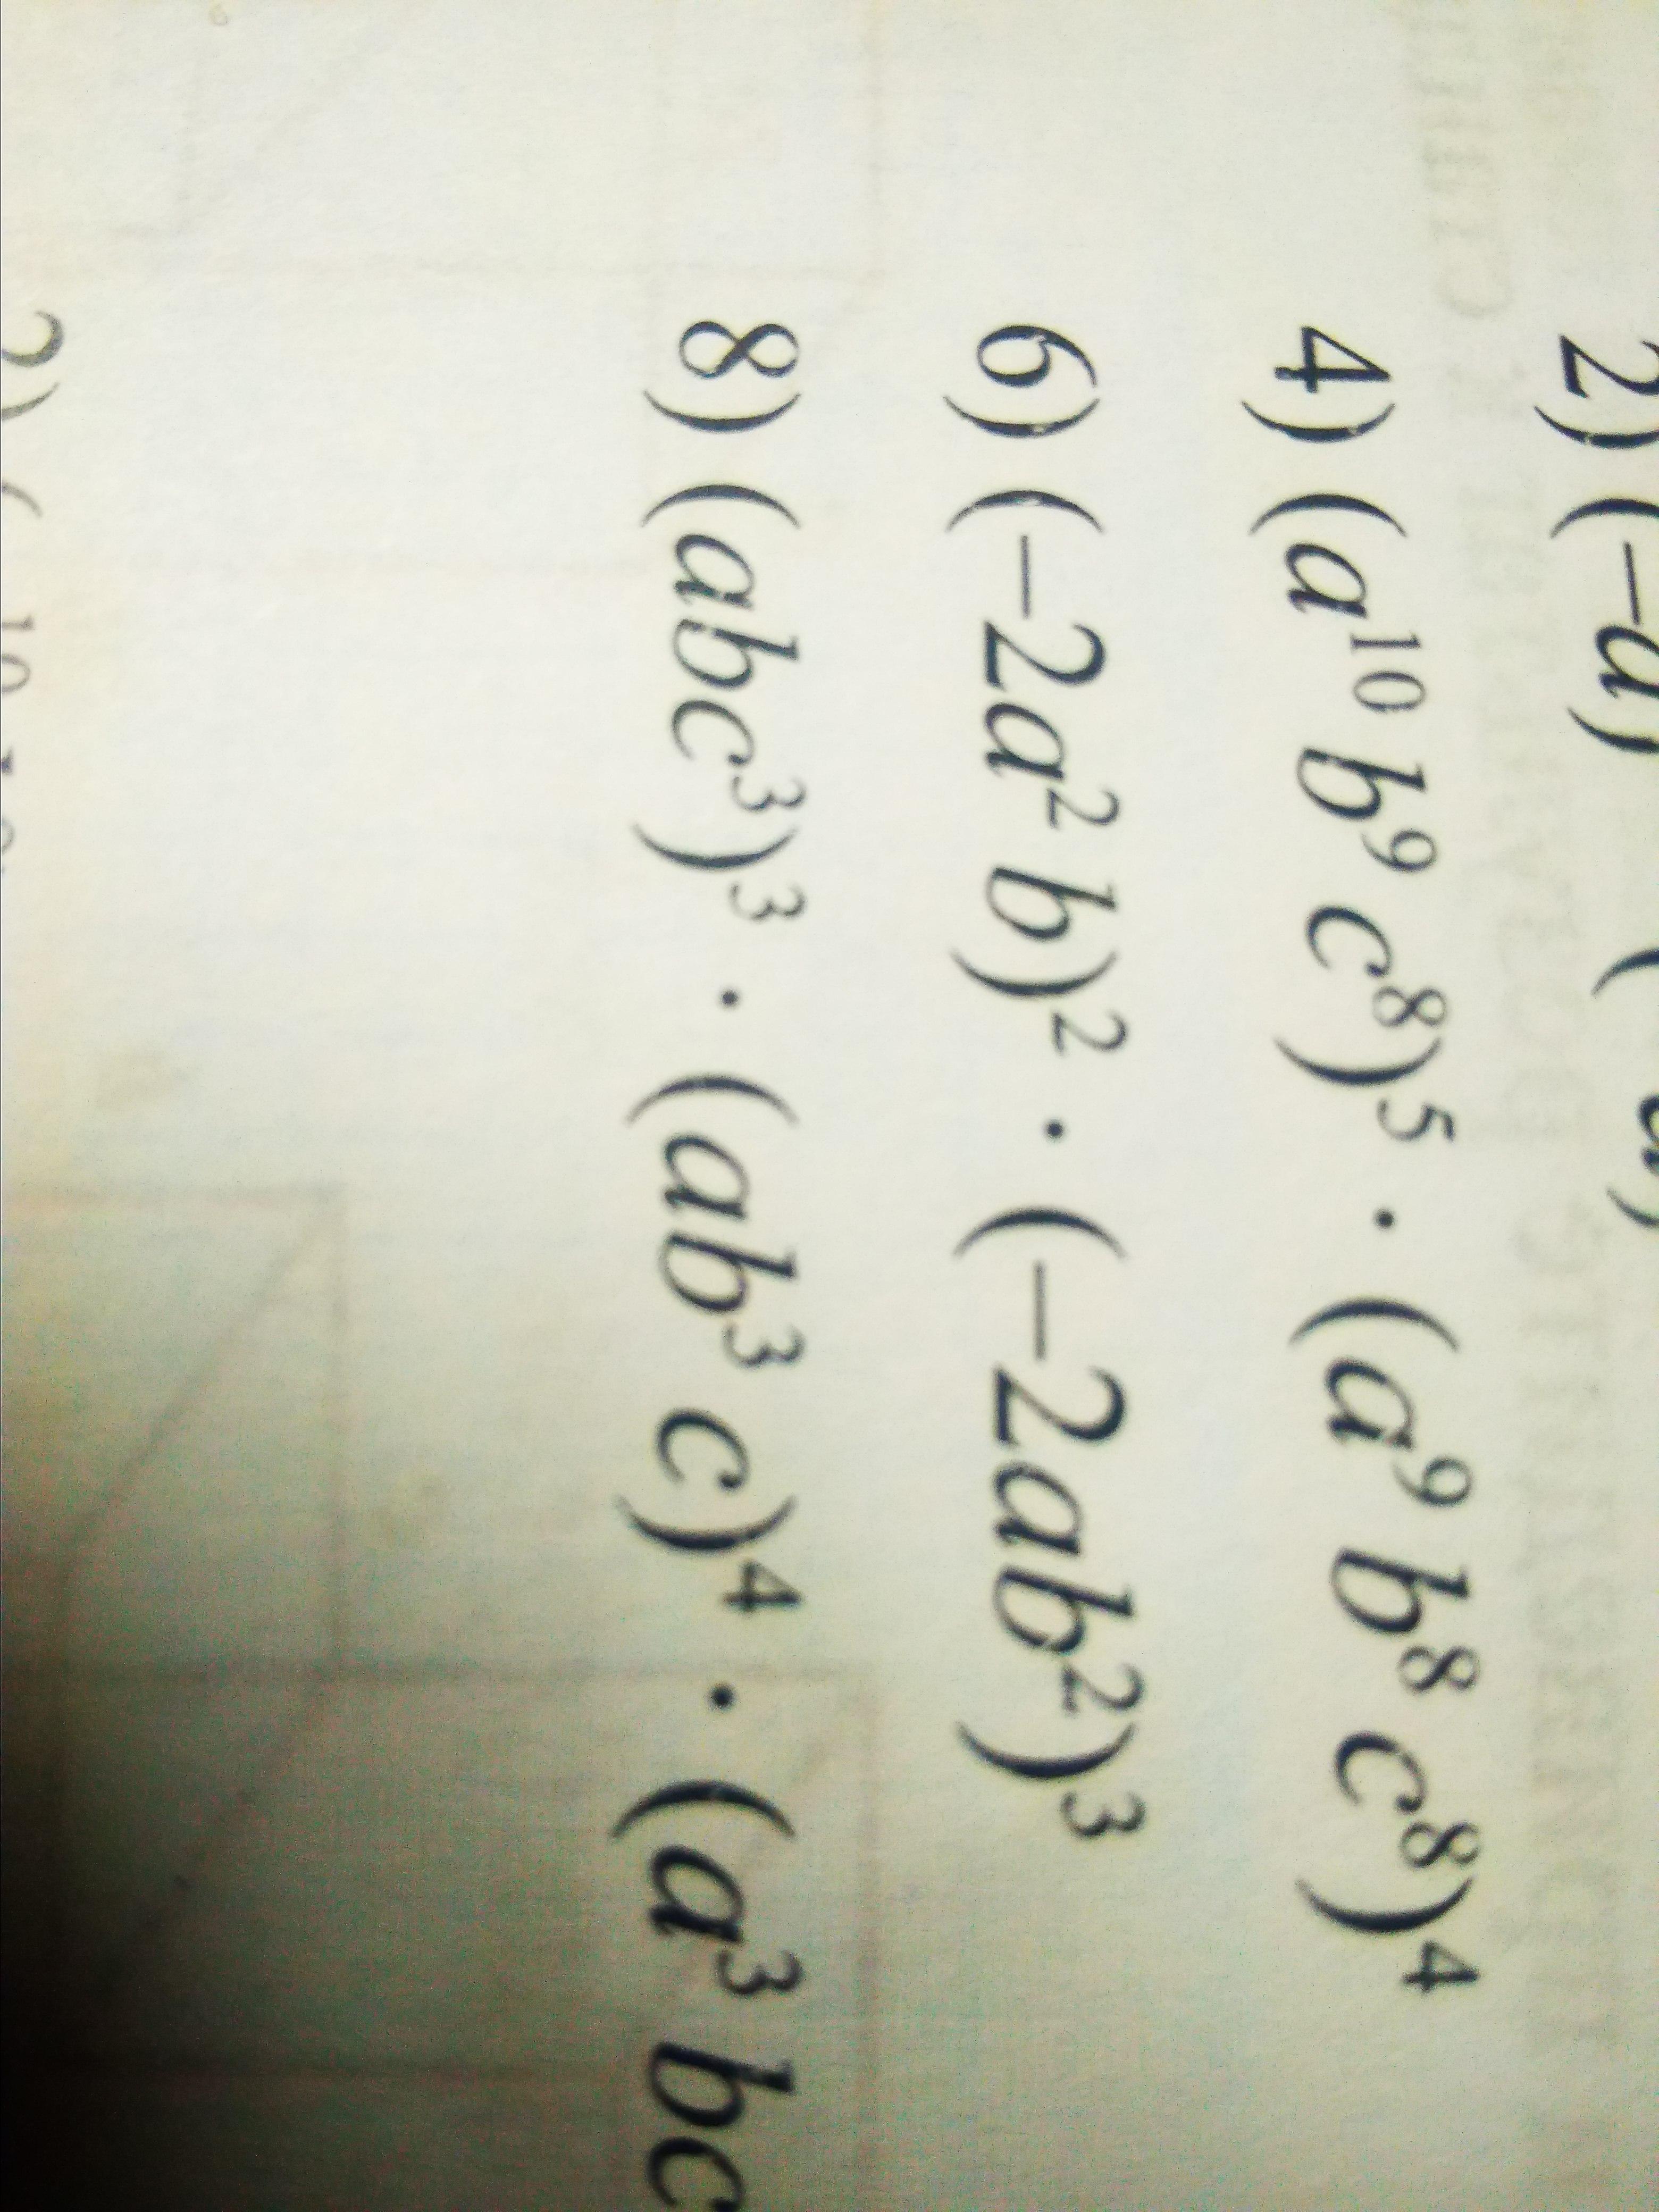 2) (–a)
4) (a¹⁰ b⁹ c⁸)⁵ · (a⁹ b⁸ c⁸)⁴
6) (–2a² b)² · (–2ab²)³
8) (abc³)³ · (ab³ c)⁴ · (a³ bc